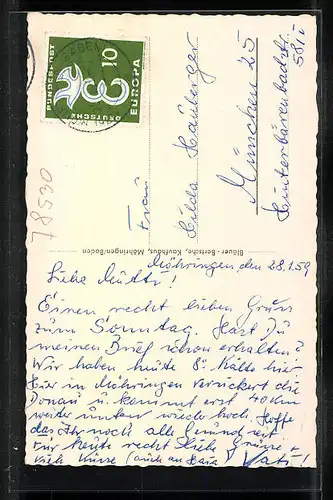 DEUTSCHE BUNDESPOST
10
EUROPA
78530
Frau
Hilda Hauberger
München 25
Hinterbärenbadstr.
58/I
Bläuer-Bertsche, Kaufhaus, Möhringen/Baden
Möhringen den 28.1.59
Liebe Mutti!
Einen recht lieben Gruss
zum Sonntag. Hast Du
meinen Brief schon erhalten?
Wir haben heute 8° Kälte hier
hier in Möhringen versickert die
Donau u. kommt erst 40 Km
weiter unten wieder hoch. Hoffe
das Ihr noch alle Gesund seit
Für heute recht liebe Grüsse u.
viele Küsse (auch an Gaia) Vati!